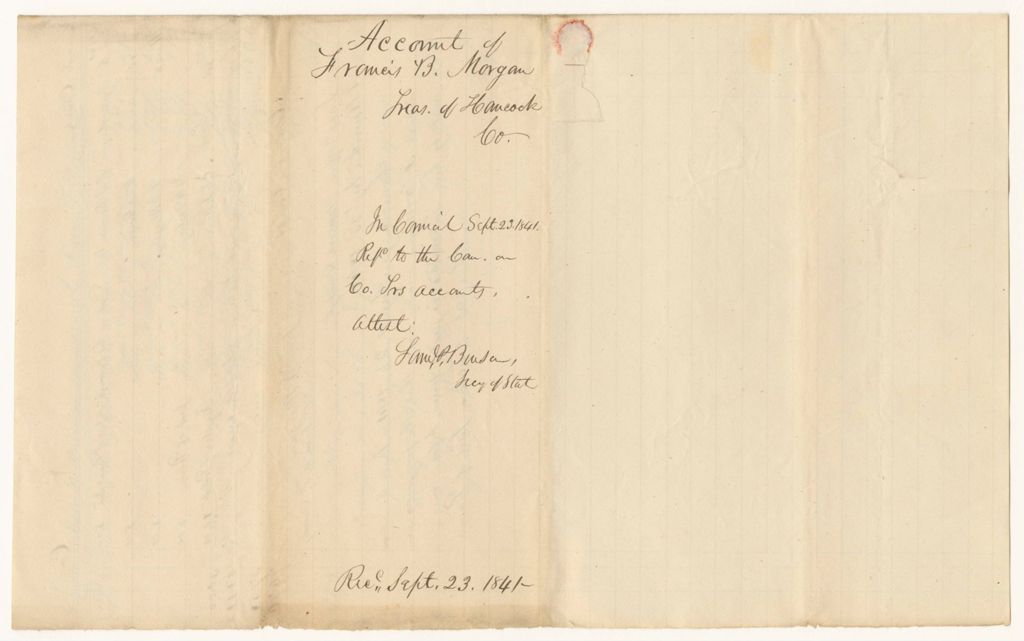 Account of
Francis B. Morgan
Treas. of Hancock
Co.
In Council Sept. 23. 1841.
Refd to the Com. on
Co. Trs accounts,
Attest:
Saml P. Benson,
Secy of State
Recd. Sept. 23. 1841-